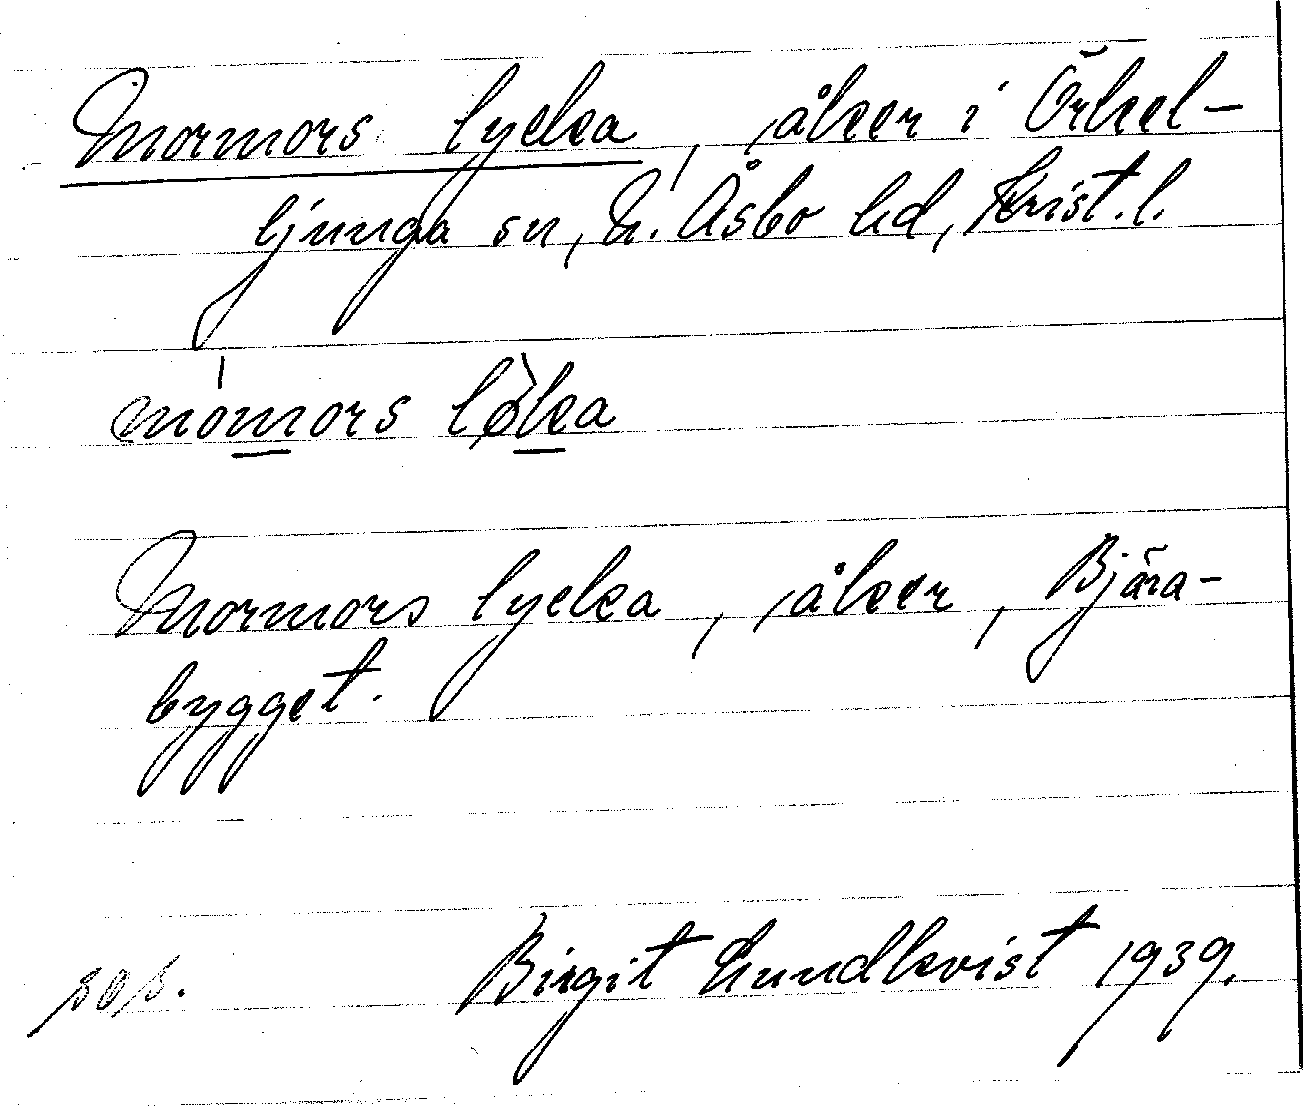 Mormors lycka, åker i Örkel-
ljunga sn, N. Åsbo hd, Krist. l.
mómors lø̀ka
Mormors lycka, åker, Bjära-
bygget.
Birgit Lundkvist 1939.